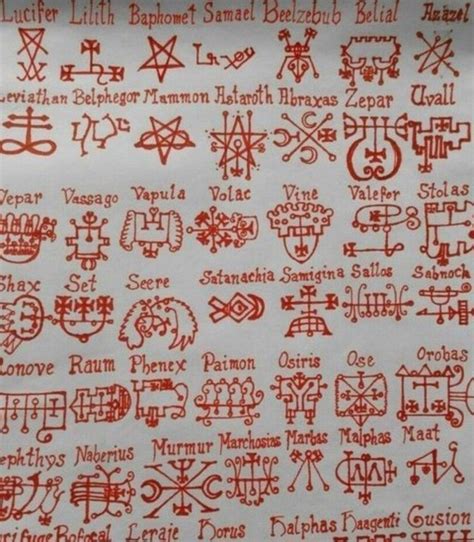 Lucifer Lilith Baphomet Samael Beelzebub Belial Azazel
Leviathan Belphegor Mammon Astaroth Abraxas Zepar Uvall
Vepar Vassago Vapula Volac Vine Valefor Stolas
Shax Set Seere Satanachia Samigina Sallos Sabnock
Ronove Raum Phenex Paimon Osiris Ose Orobas
Nephthys Naberius Murmur Marchosias Marbas Malphas Maat
Rofocal Leraje Horus Halphas Haagenti Gusion